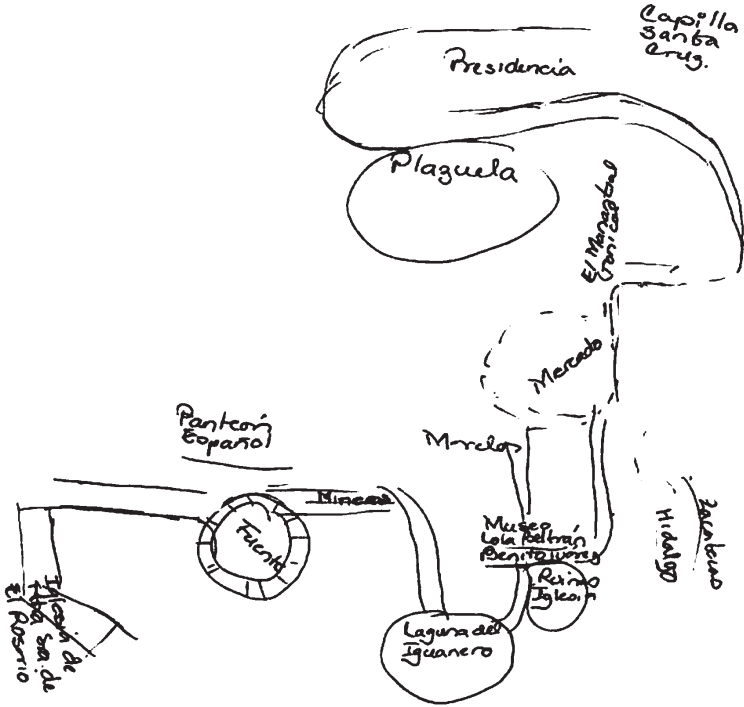 Capilla
Santa
Cruz.
Presidencia
Plazuela
El Manantial
Mercado
Panteón
Español
Morelos
Mineros
Fuente
Museo
Lola Beltrán
Benito Juárez
Ruinas
Iglesia
Zacatecas
Hidalgo
Laguna del
Iguanero
Iglesia de
Ntra Sra. de
El Rosario